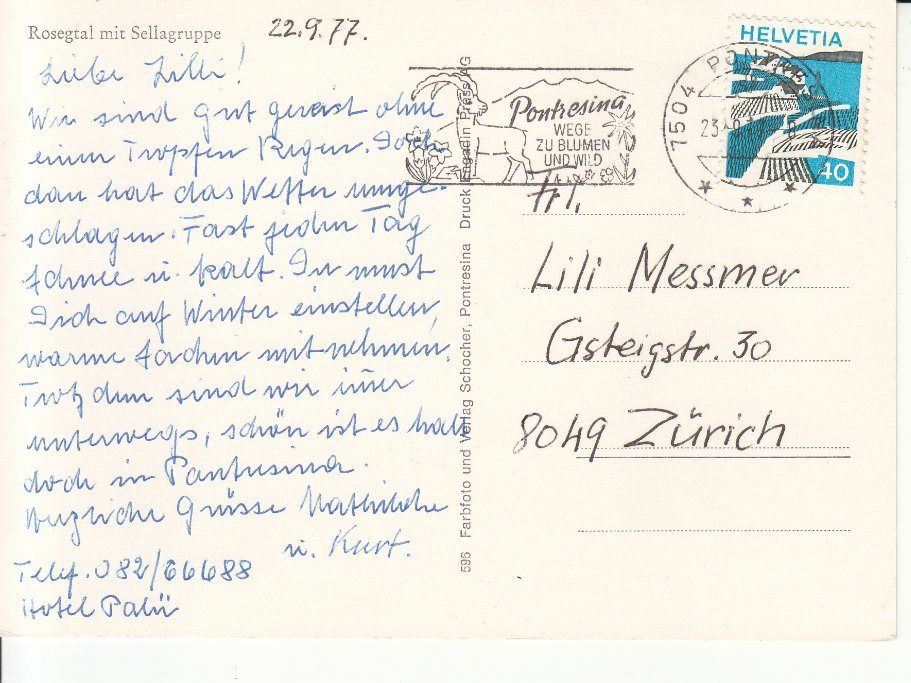 Rosegtal mit Sellagruppe
22.9.77.
Liebe Lilli!
Wir sind gut gereist ohne
einen Tropfen Regen. Doch
dan hat das Wetter umge-
schlagen. Fast jeden Tag
Schnee u. kalt. Du must
Dich auf Winter einstellen,
warme Sachen mitnehmen.
Trotzdem sind wir imer
unterwegs, schön ist es halt
doch in Pontresina.
Herzliche Grüsse Mathilde
u. Kurt.
Telef. 082/66688
Hotel Palü
596 Farbfoto und Verlag Schocher, Pontresina Druck Engadin Press AG
Pontresina
WEGE
ZU BLUMEN
UND WILD
7504 PONTRESINA
HELVETIA
40
Frl.
Lili Messmer
Gsteigstr. 30
8049 Zürich